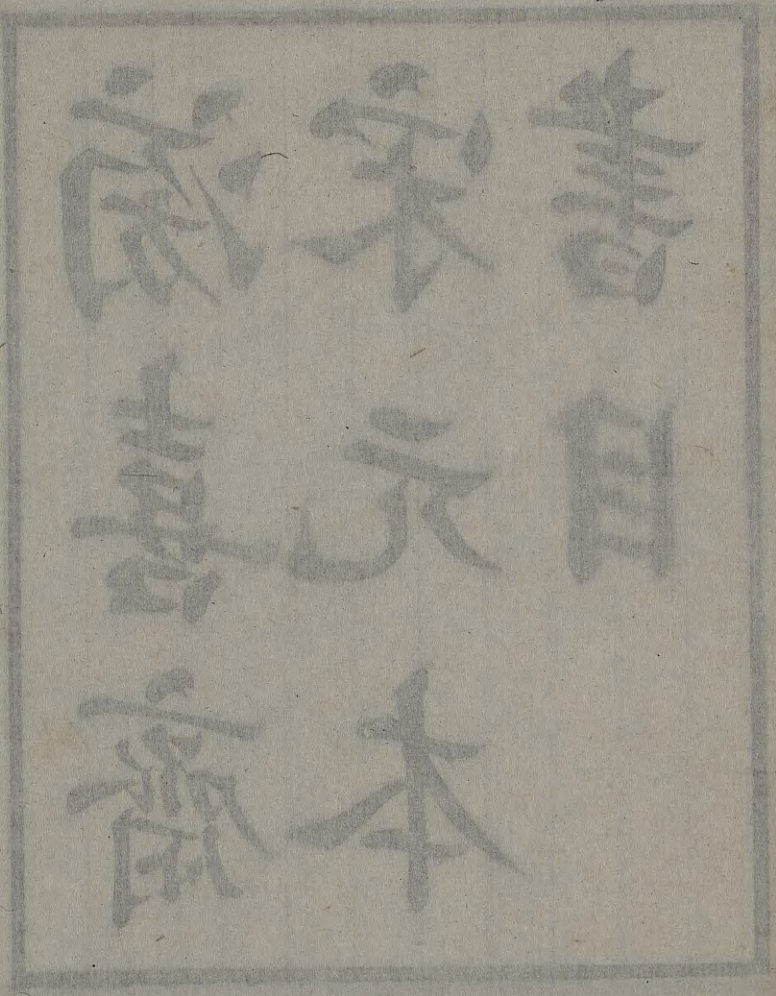 滂喜齋
宋元本
書目